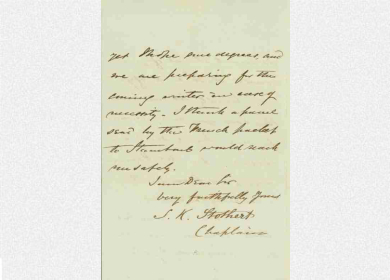 yet hope
we are preparing for the
coming winter in case of
necessity. I think a parcel
sent by the French packet
to Stamboul would reach
me safely.
I am Dear Sir
very faithfully Yours
S. K. Stothert
Chaplain